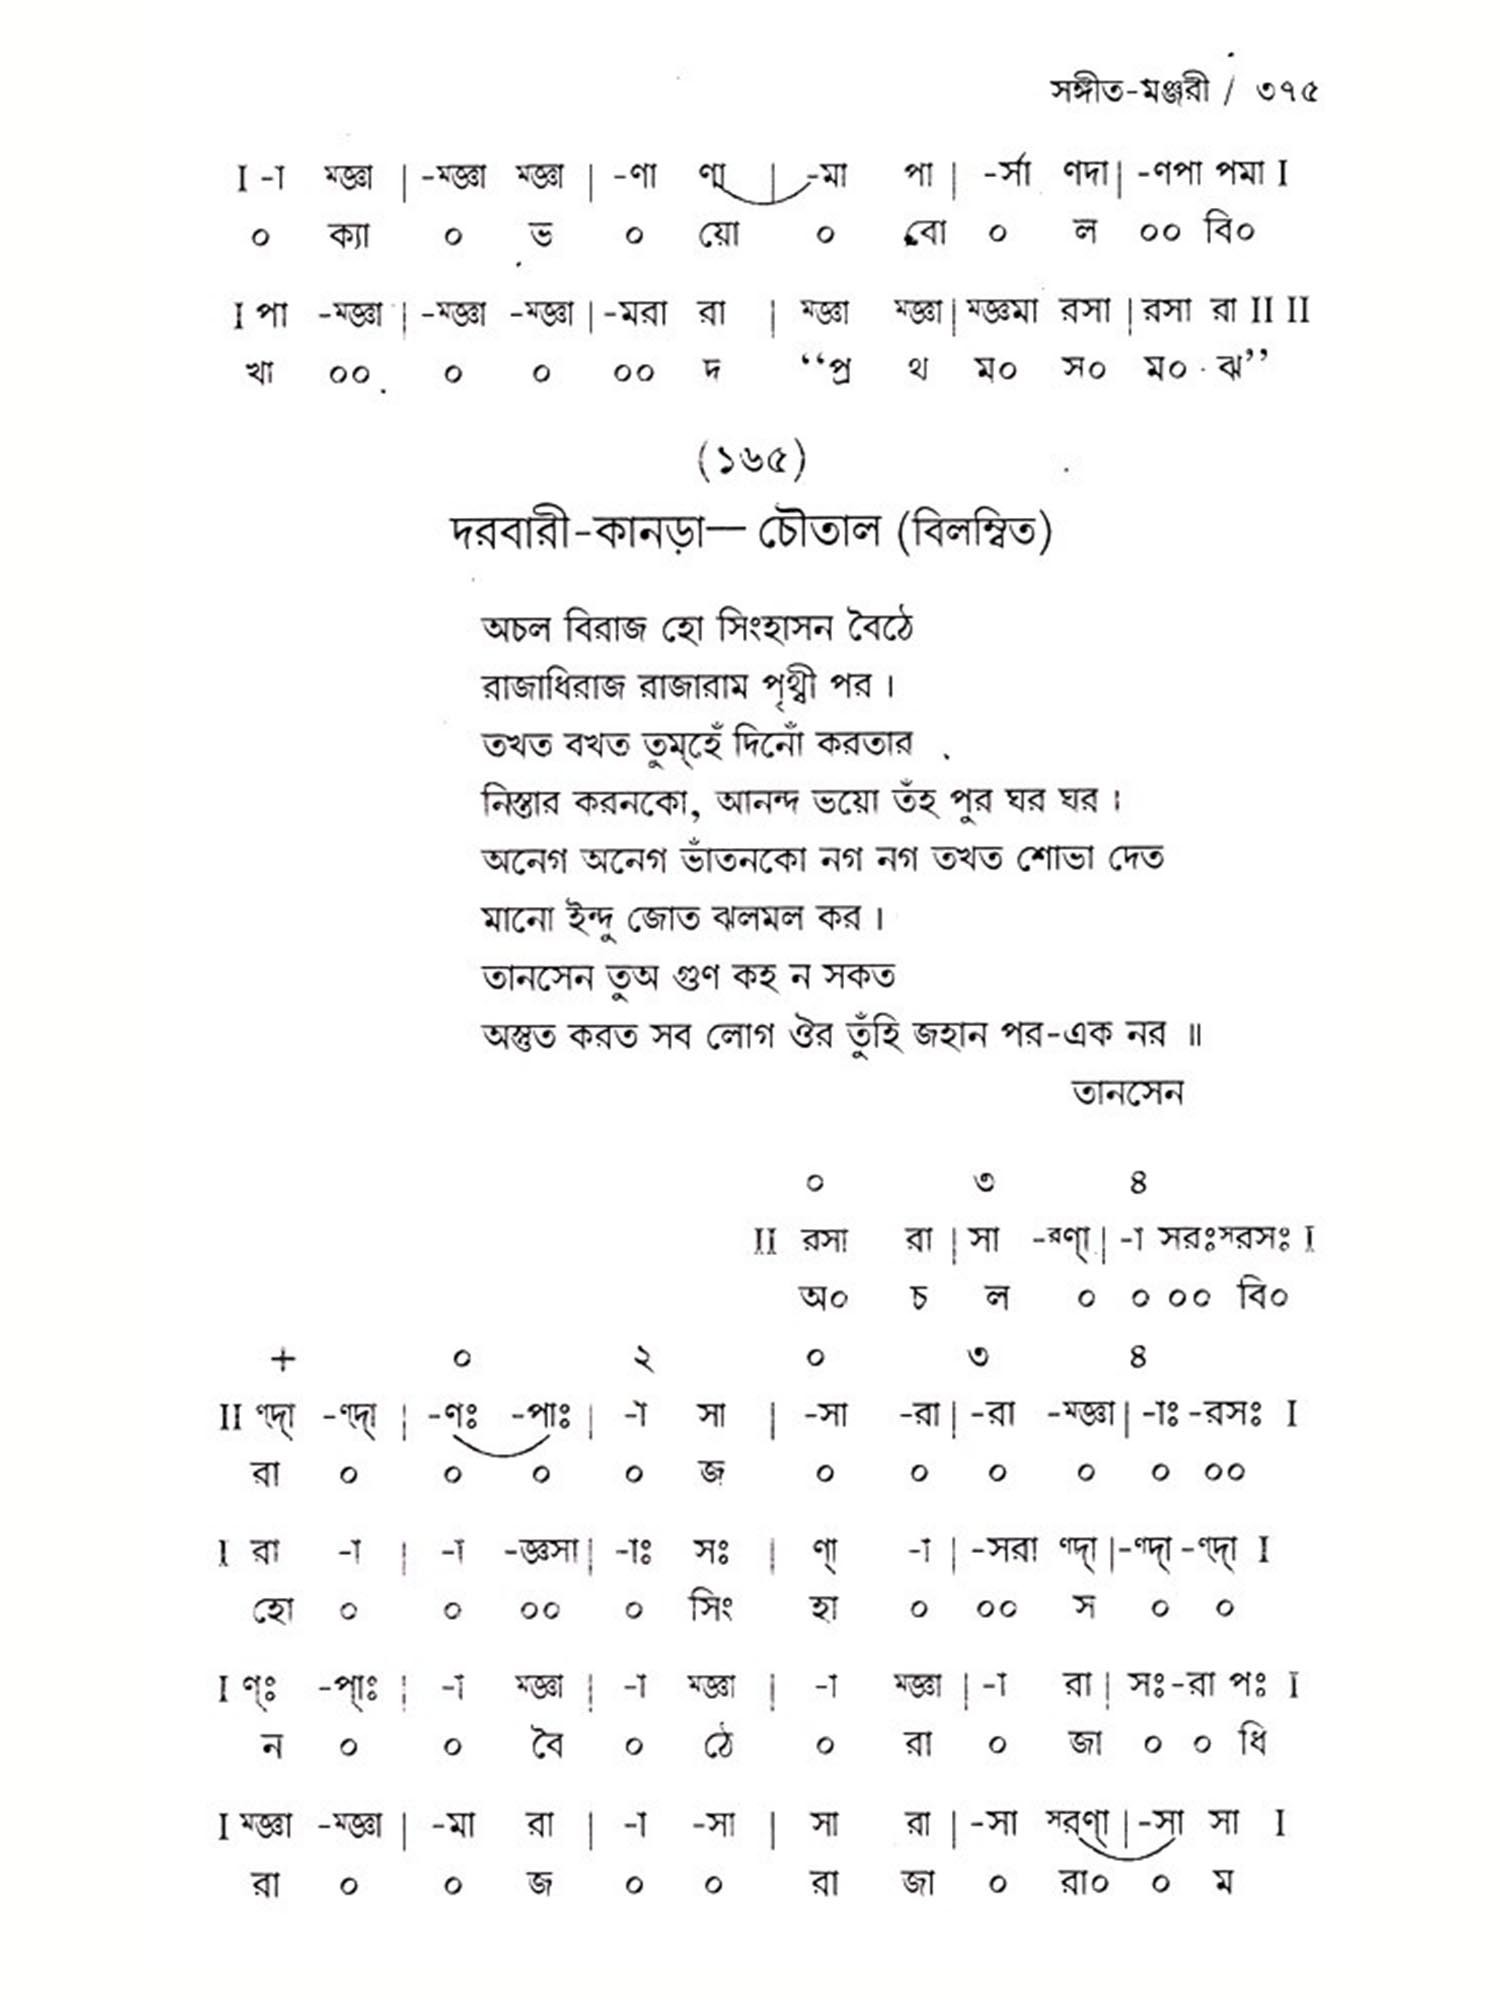 সঙ্গীত-মঞ্জরী / ৩৭৫
I -া মজ্ঞা | -মজ্ঞা মজ্ঞা | -ণা ণা | -মা পা | -র্সা ণদা | -ণপা পমা I
০ ক্যা ০ ভ ০ য়ো ০ বো ০ ল ০০ বি০
I পা -মজ্ঞা | -মজ্ঞা -মজ্ঞা | -মরা রা | মজ্ঞা মজ্ঞা | মজ্ঞমা রসা | রসা রা II II
খা ০০ ০ ০ ০০ দ “প্র থ ম০ স০ ম০ ঝ”
(১৬৫)
দরবারী-কানড়া— চৌতাল (বিলম্বিত)
অচল বিরাজ হো সিংহাসন বৈঠে
রাজাধিরাজ রাজারাম পৃথ্বী পর ।
তখত বখত তুম্‌হেঁ দিনোঁ করতার
নিস্তার করনকো, আনন্দ ভয়ো তঁহ পুর ঘর ঘর ।
অনেগ অনেগ ভাঁতনকো নগ নগ তখত শোভা দেত
মানো ইন্দু জোত ঝলমল কর ।
তানসেন তুঅ গুণ কহ ন সকত
অস্তুত করত সব লোগ ঔর তুঁহি জহান পর-এক নর ॥
তানসেন
০ ৩ ৪
II রসা রা | সা -রণ্া | -া সরঃসরসঃ I
অ০ চ ল ০ ০ ০০ বি০
+ ০ ২ ০ ৩ ৪
II ণ্দা -ণ্দা | -ণঃ -পাঃ | -া সা | -সা -রা | -রা -মজ্ঞা | -াঃ -রসঃ I
রা ০ ০ ০ ০ জ ০ ০ ০ ০ ০ ০০
I রা -া | -া -জ্ঞসা | -াঃ সঃ | ণ্া -া | -সরা ণ্দা | -ণ্দা -ণ্দা I
হো ০ ০ ০০ ০ সিং হা ০ ০০ স ০ ০
I ণ্ঃ -প্াঃ | -া মজ্ঞা | -া মজ্ঞা | -া মজ্ঞা | -া রা | সঃ-রা পঃ I
ন ০ ০ বৈ ০ ঠে ০ রা ০ জা ০ ০ ধি
I মজ্ঞা -মজ্ঞা | -মা রা | -া -সা | সা রা | -সা সরণ্া | -সা সা I
রা ০ ০ জ ০ ০ রা জা ০ রা০ ০ ম